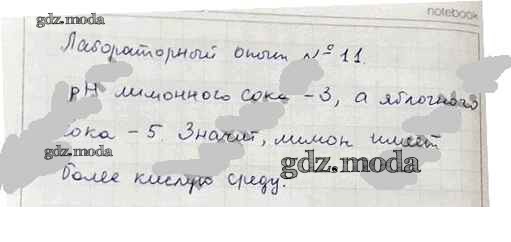 notebook
gdz.moda
Лабораторный опыт №11.
pH лимонного сока -3, а яблочного
gdz.moda
сока -5. Значит, лимон имеет
gdz.moda
более кислую среду.
gdz.moda